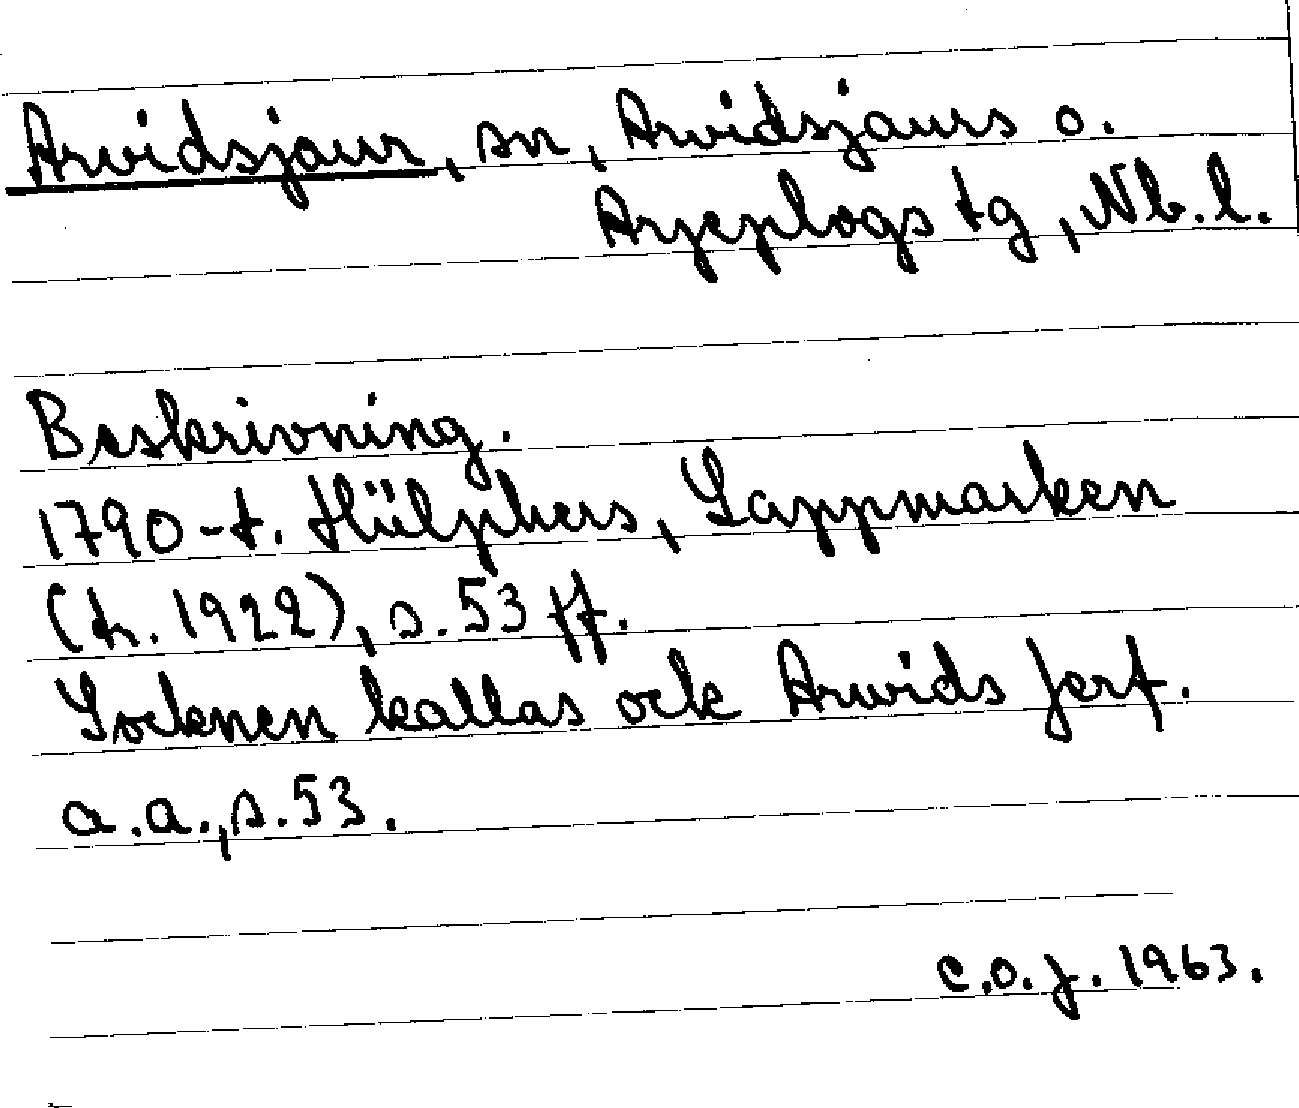 Arvidsjaur, sn, Arvidsjaurs o.
Arjeplogs tg, Nb.l.
Beskrivning.
1790-t. Hülphers, Lappmarken
(tr. 1922), s. 53 ff.
Socknen kallas ock Arwids jerf.
a.a., s. 53.
C.O.J. 1963.